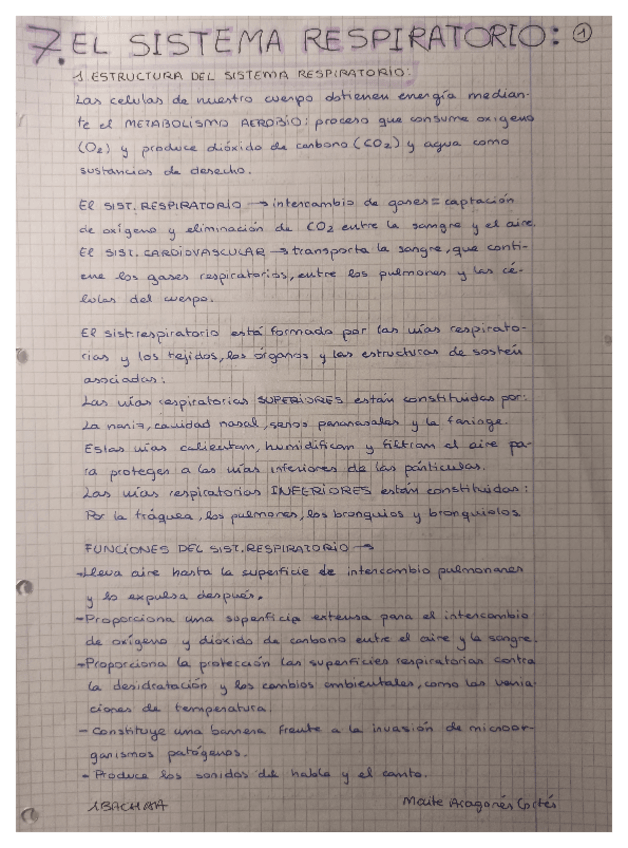 7. EL SISTEMA RESPIRATORIO: 1
1 ESTRUCTURA DEL SISTEMA RESPIRATORIO:
Las celulas de nuestro cuerpo obtienen energía median-
te el METABOLISMO AEROBIO: proceso que consume oxigeno
(O2) y produce dióxido de carbono (CO2) y agua como
sustancias de desecho.
El SIST. RESPIRATORIO → intercambio de gases = captación
de oxígeno y eliminación de CO2 entre la sangre y el aire.
El SIST. CARDIOVASCULAR → transporta la sangre, que conti-
ene los gases respiratorios, entre los pulmones y las cé-
lulas del cuerpo.
El sist.respiratorio está formado por las vías respirato-
rias y los tejidos, los órganos y las estructuras de sostén
asociadas:
Las vías respiratorias SUPERIORES están constituidas por:
La nariz, cavidad nasal, senos paranasales y la faringe.
Estas vías calientan, humidifican y filtran el aire pa-
ra proteger a las vías inferiores de las partículas.
Las vías respiratorias INFERIORES están constituidas:
Por la tráquea, los pulmones, los bronquios y bronquiolos
FUNCIONES DEL SIST. RESPIRATORIO →
-Lleva aire hasta la superficie de intercambio pulmonares
y lo expulsa después.
-Proporciona una superficie extensa para el intercambio
de oxígeno y dioxido de carbono entre el aire y la sangre.
-Proporciona la protección las superficies respiratorias contra
la desidratación y los cambios ambientales, como las varia-
ciones de temperatura.
- Constituye una barrera frente a la invasión de microor-
ganismos patógenos.
- Produce los sonidos del habla y el canto.
1BACH
Maite Aragonés Cortés